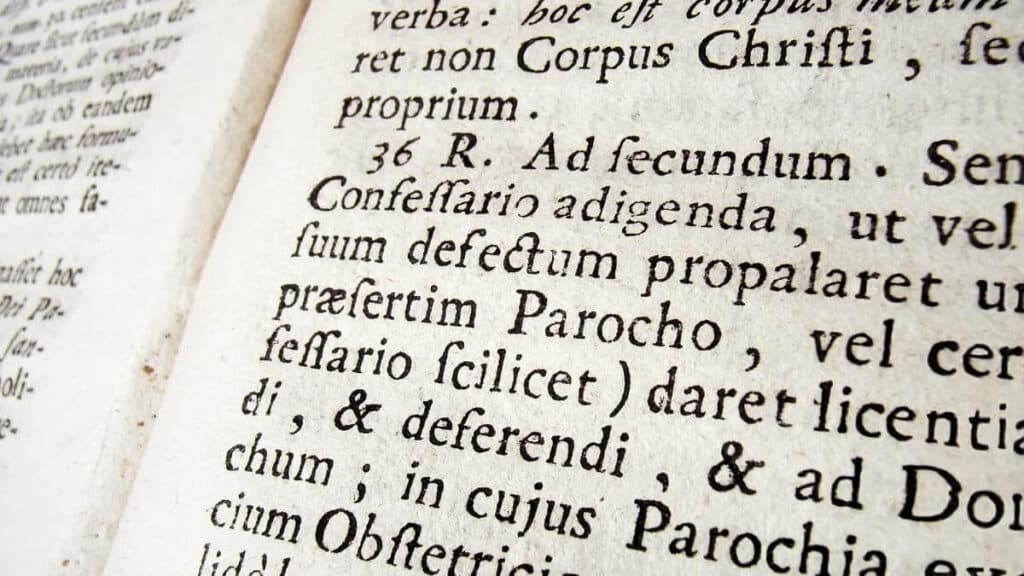 Quare ſicut ſecundùm di-
materia, de cujus va-
Doctorum opinio-
; ita ob eandem
hæc formu-
eſt certò ite-
omnes ſa-
hoc
Dei Pa-
ſan-
oli-
e-
verba : hoc eſt corpus meum
ret non Corpus Chriſti , ſed
proprium .
36 R. Ad ſecundum . Sen
Confeſſario adigenda , ut vel
ſuum defectum propalaret un
præſertim Parocho , vel cer
feſſario ſcilicet ) daret licentia
di , & deferendi , & ad Don
chum ; in cujus Parochia ex
cium Obſtetrici